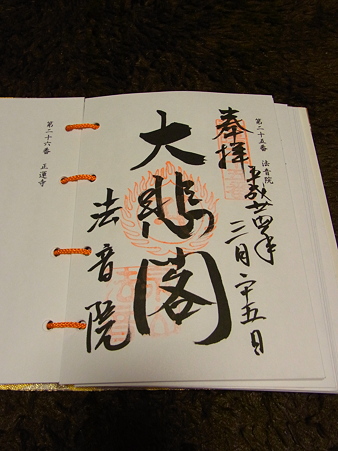 第二十五番 法音院
奉拝
平成廿四年
三月二十五日
大悲閣
法音院
第二十六番 正運寺